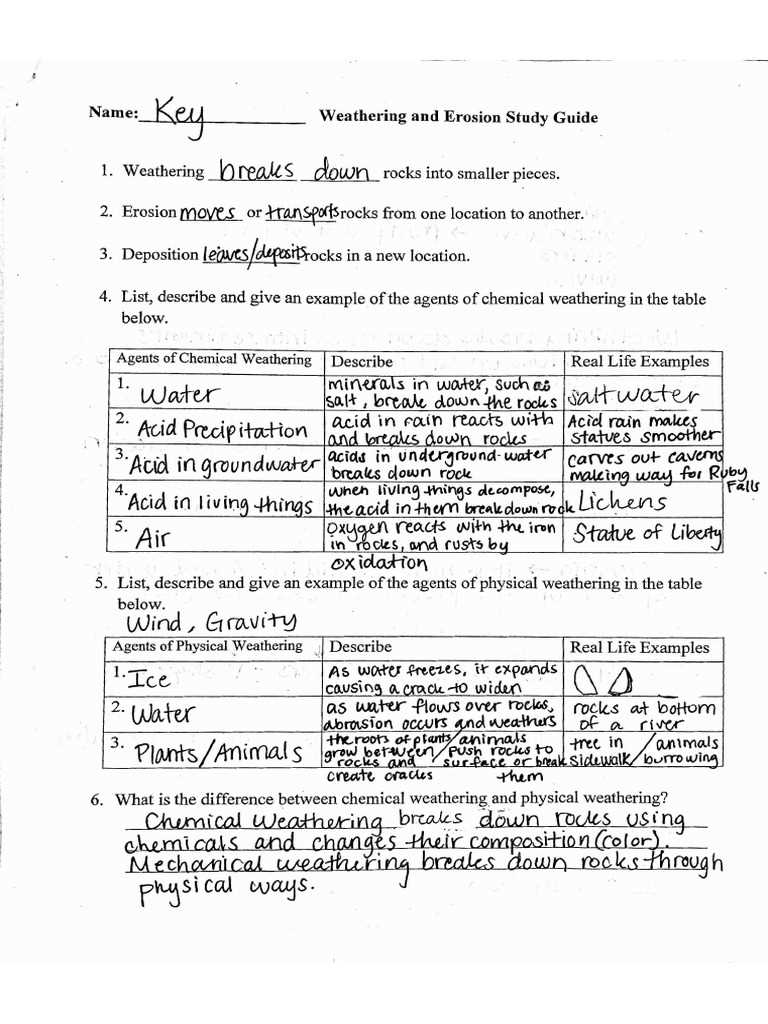 Name: Key Weathering and Erosion Study Guide
1. Weathering breaks down rocks into smaller pieces.
2. Erosion moves or transports rocks from one location to another.
3. Deposition leaves/deposits rocks in a new location.
4. List, describe and give an example of the agents of chemical weathering in the table
below.
Agents of Chemical Weathering Describe Real Life Examples
1. Water minerals in water, such as salt, break down the rocks salt water
2. Acid Precipitation acid in rain reacts with and breaks down rocks Acid rain makes statues smoother
3. Acid in groundwater acids in underground water breaks down rock carves out caverns making way for Ruby Falls
4. Acid in living things when living things decompose, the acid in them break down rock Lichens
5. Air Oxygen reacts with the iron in rocks, and rusts by oxidation Statue of Liberty
5. List, describe and give an example of the agents of physical weathering in the table
below.
Wind, Gravity
Agents of Physical Weathering Describe Real Life Examples
1. Ice As water freezes, it expands causing a crack to widen
2. Water as water flows over rocks, abrasion occurs and weathers rocks at bottom of a river
3. Plants/Animals the roots of plants grow between rocks and create cracks / animals push rocks to surface or break them tree in sidewalk / animals burrowing
6. What is the difference between chemical weathering and physical weathering?
Chemical Weathering breaks down rocks using
chemicals and changes their composition (color).
Mechanical weathering breaks down rocks through
physical ways.